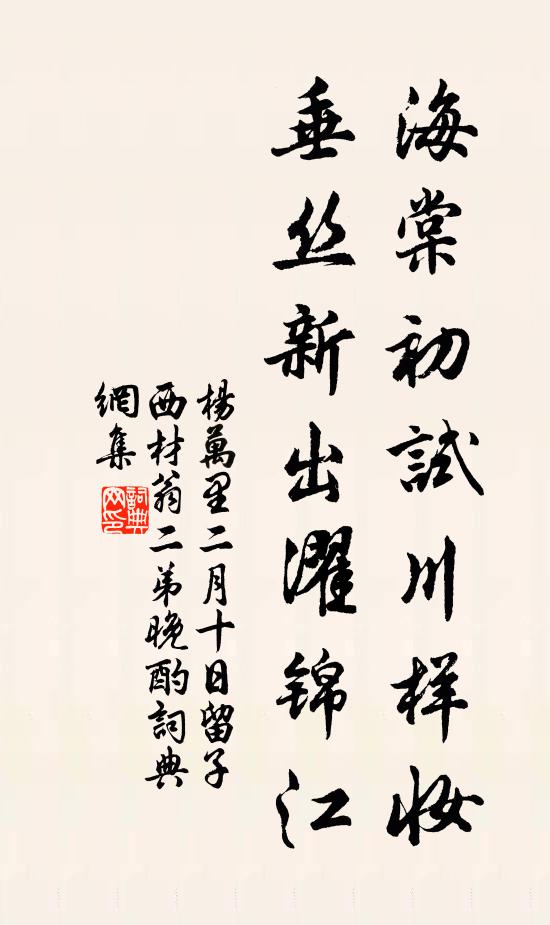 海棠初試川样妝
垂丝新出濯锦江
楊萬里二月十日留子
西材翁二弟晚酌詞典
網集
詞典網印